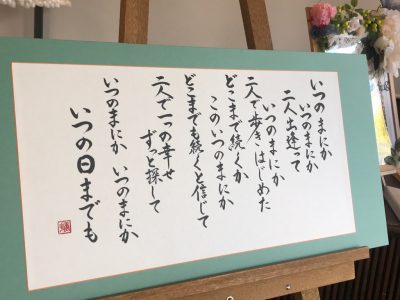 いつのまにか
いつのまにか
二人出逢って
いつのまにか
二人で歩きはじめた
どこまで続くか
このいつのまにか
どこまでも続くと信じて
二人で一つの幸せ
ずっと探して
いつのまにか　いつのまにか
いつの日までも